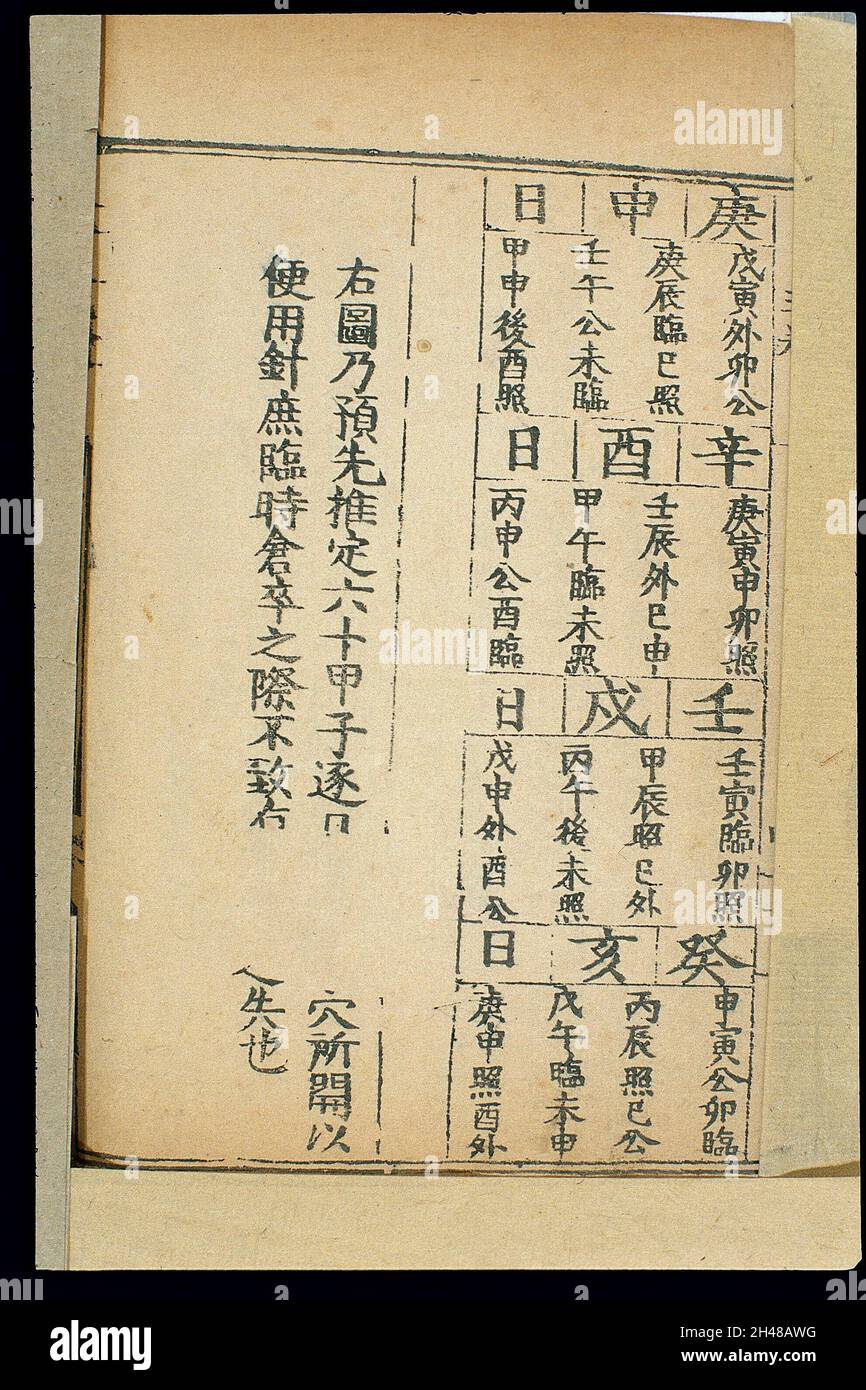 庚申日
戊寅外卯公
庚辰臨巳照
壬午公未臨
甲申後酉照
辛酉日
庚寅申卯照
壬辰外巳申
甲午臨未照
丙申公酉臨
壬戌日
壬寅臨卯照
甲辰照巳外
丙午後未照
戊申外酉公
癸亥日
甲寅公卯臨
丙辰照巳公
戊午臨未申
庚申照酉外
右圖乃預先推定六十甲子逐日穴所開以
便用針庶臨時倉卒之際不致有失也
alamy
Image ID: 2H48AWG
www.alamy.com